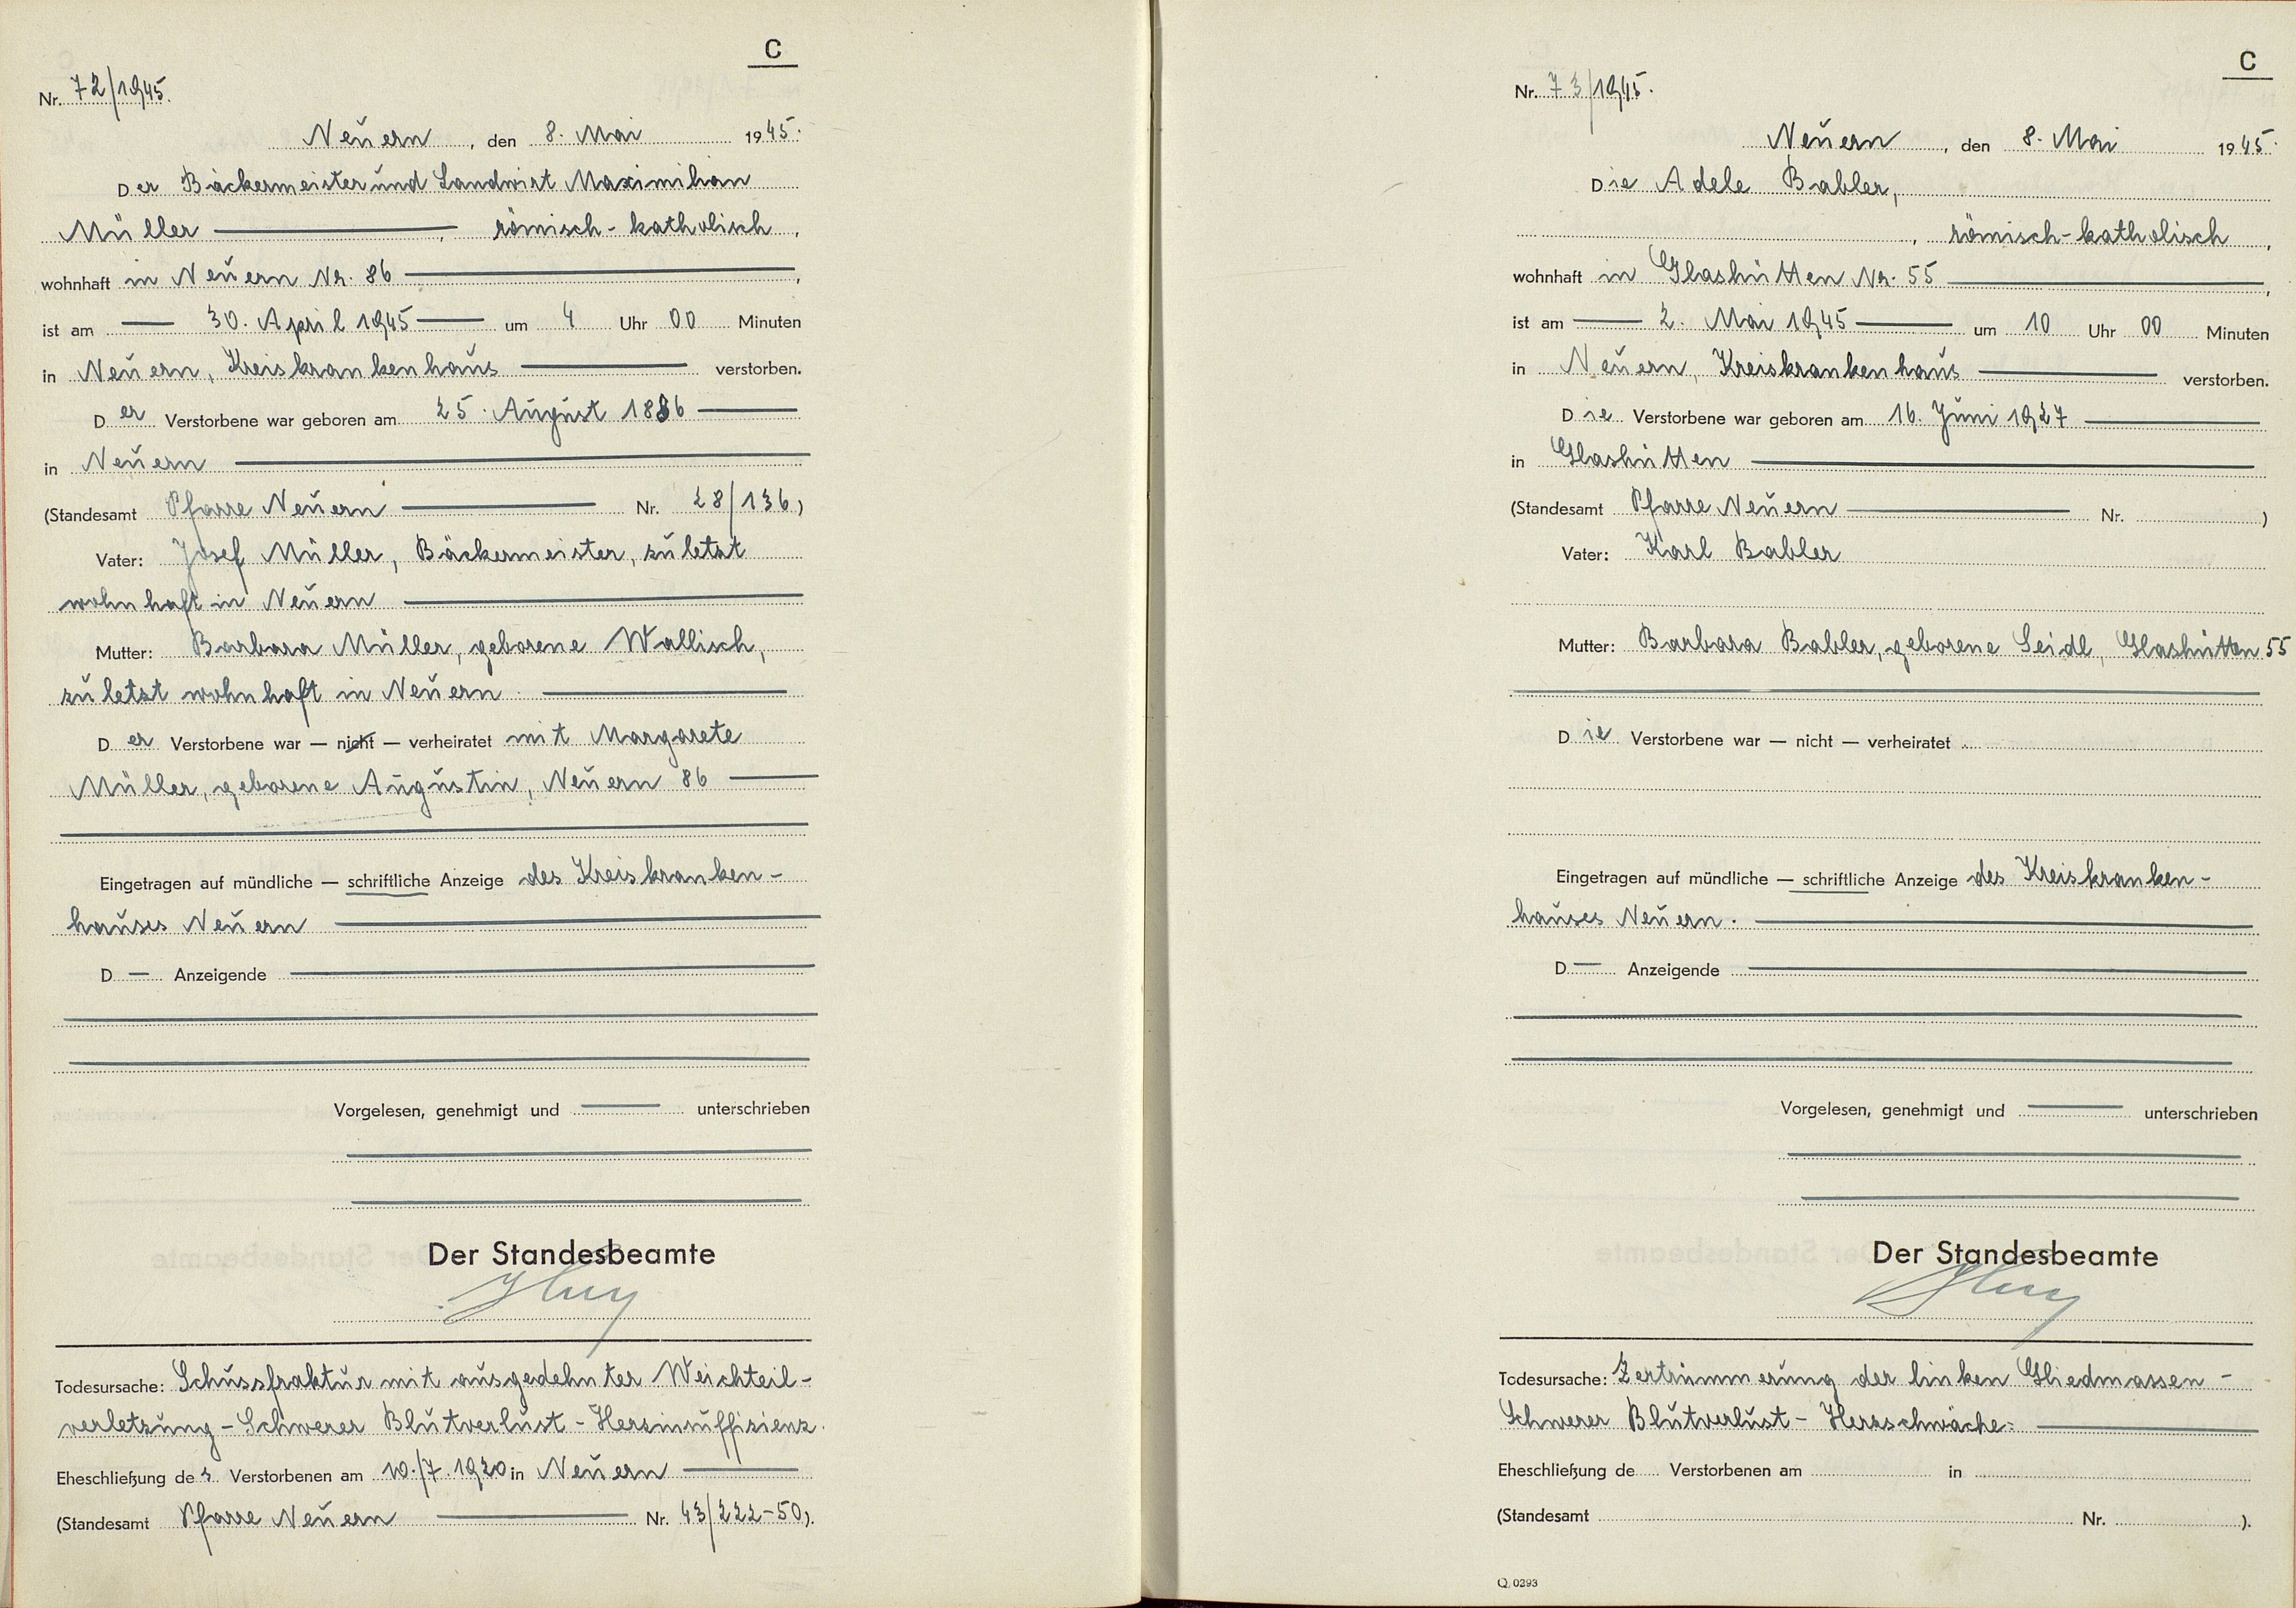 C
Nr. 72/1945.
Neuern, den 8. Mai 1945.
Der Bäckermeister und Landwirt Maximilian
Müller, römisch-katholisch,
wohnhaft in Neuern Nr. 86,
ist am 30. April 1945 um 4 Uhr 00 Minuten
in Neuern, Kreiskrankenhaus verstorben.
Der Verstorbene war geboren am 25. August 1886
in Neuern
(Standesamt Pfarre Neuern Nr. 28/136)
Vater: Josef Müller, Bäckermeister, zuletzt
wohnhaft in Neuern
Mutter: Barbara Müller, geborene Wallisch,
zuletzt wohnhaft in Neuern.
Der Verstorbene war — nicht — verheiratet mit Margarete
Müller, geborene Augustin, Neuern 86
Eingetragen auf mündliche — schriftliche Anzeige des Kreiskranken-
hauses Neuern
D — Anzeigende
Vorgelesen, genehmigt und — unterschrieben
Der Standesbeamte
Todesursache: Schussfraktur mit ausgedehnter Weichteil-
verletzung - Schwerer Blutverlust - Herzinsuffizienz.
Eheschließung des Verstorbenen am 10./7. 1920 in Neuern
(Standesamt Pfarre Neuern Nr. 43/222-50).
C
Nr. 73/1945.
Neuern, den 8. Mai 1945.
Die Adele Babler,
, römisch-katholisch,
wohnhaft in Glashütten Nr. 55,
ist am 2. Mai 1945 um 10 Uhr 00 Minuten
in Neuern, Kreiskrankenhaus verstorben.
Die Verstorbene war geboren am 16. Juni 1927
in Glashütten
(Standesamt Pfarre Neuern Nr. )
Vater: Karl Babler
Mutter: Barbara Babler, geborene Seidl, Glashütten 55
Die Verstorbene war — nicht — verheiratet
Eingetragen auf mündliche — schriftliche Anzeige des Kreiskranken-
hauses Neuern.
D — Anzeigende
Vorgelesen, genehmigt und — unterschrieben
Der Standesbeamte
Todesursache: Zertrümmerung der linken Gliedmassen -
Schwerer Blutverlust - Herzschwäche.
Eheschließung de Verstorbenen am in
(Standesamt Nr. ).
Q. 0293